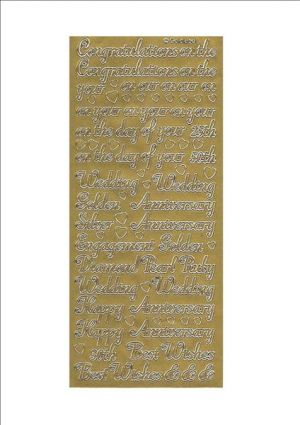 Congratulations on the
Congratulations on the
your on our on our on
on your on your on your
on the day of your 25th
on the day of your 50th
Wedding Wedding
Golden Anniversary
Silver Anniversary
Engagement Golden
Diamond Pearl Ruby
Wedding Wedding
Happy Anniversary
Happy Anniversary
30th Best Wishes
Best Wishes & & &